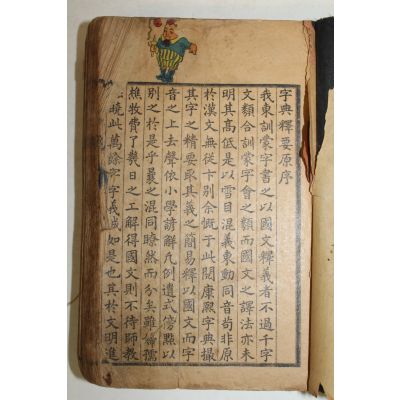 字典釋要原序
我東訓蒙字書之以國文釋義者不過千字
文類合訓蒙字會之類而國文之譯法亦未
明其高低是以雪目混義東動同音苟非原
於漢文無從卞別余慨于此閱康熙字典撮
其字之精要取其義之簡易釋以國文而字
音之上去聲依小學諺解凡例遺式傍點以
別之於是乎義之混同瞭然而分矣雖婦孺
樵牧費了幾日之工解得國文則不待師敎
曉此萬餘字字義咸如是也其於文明進